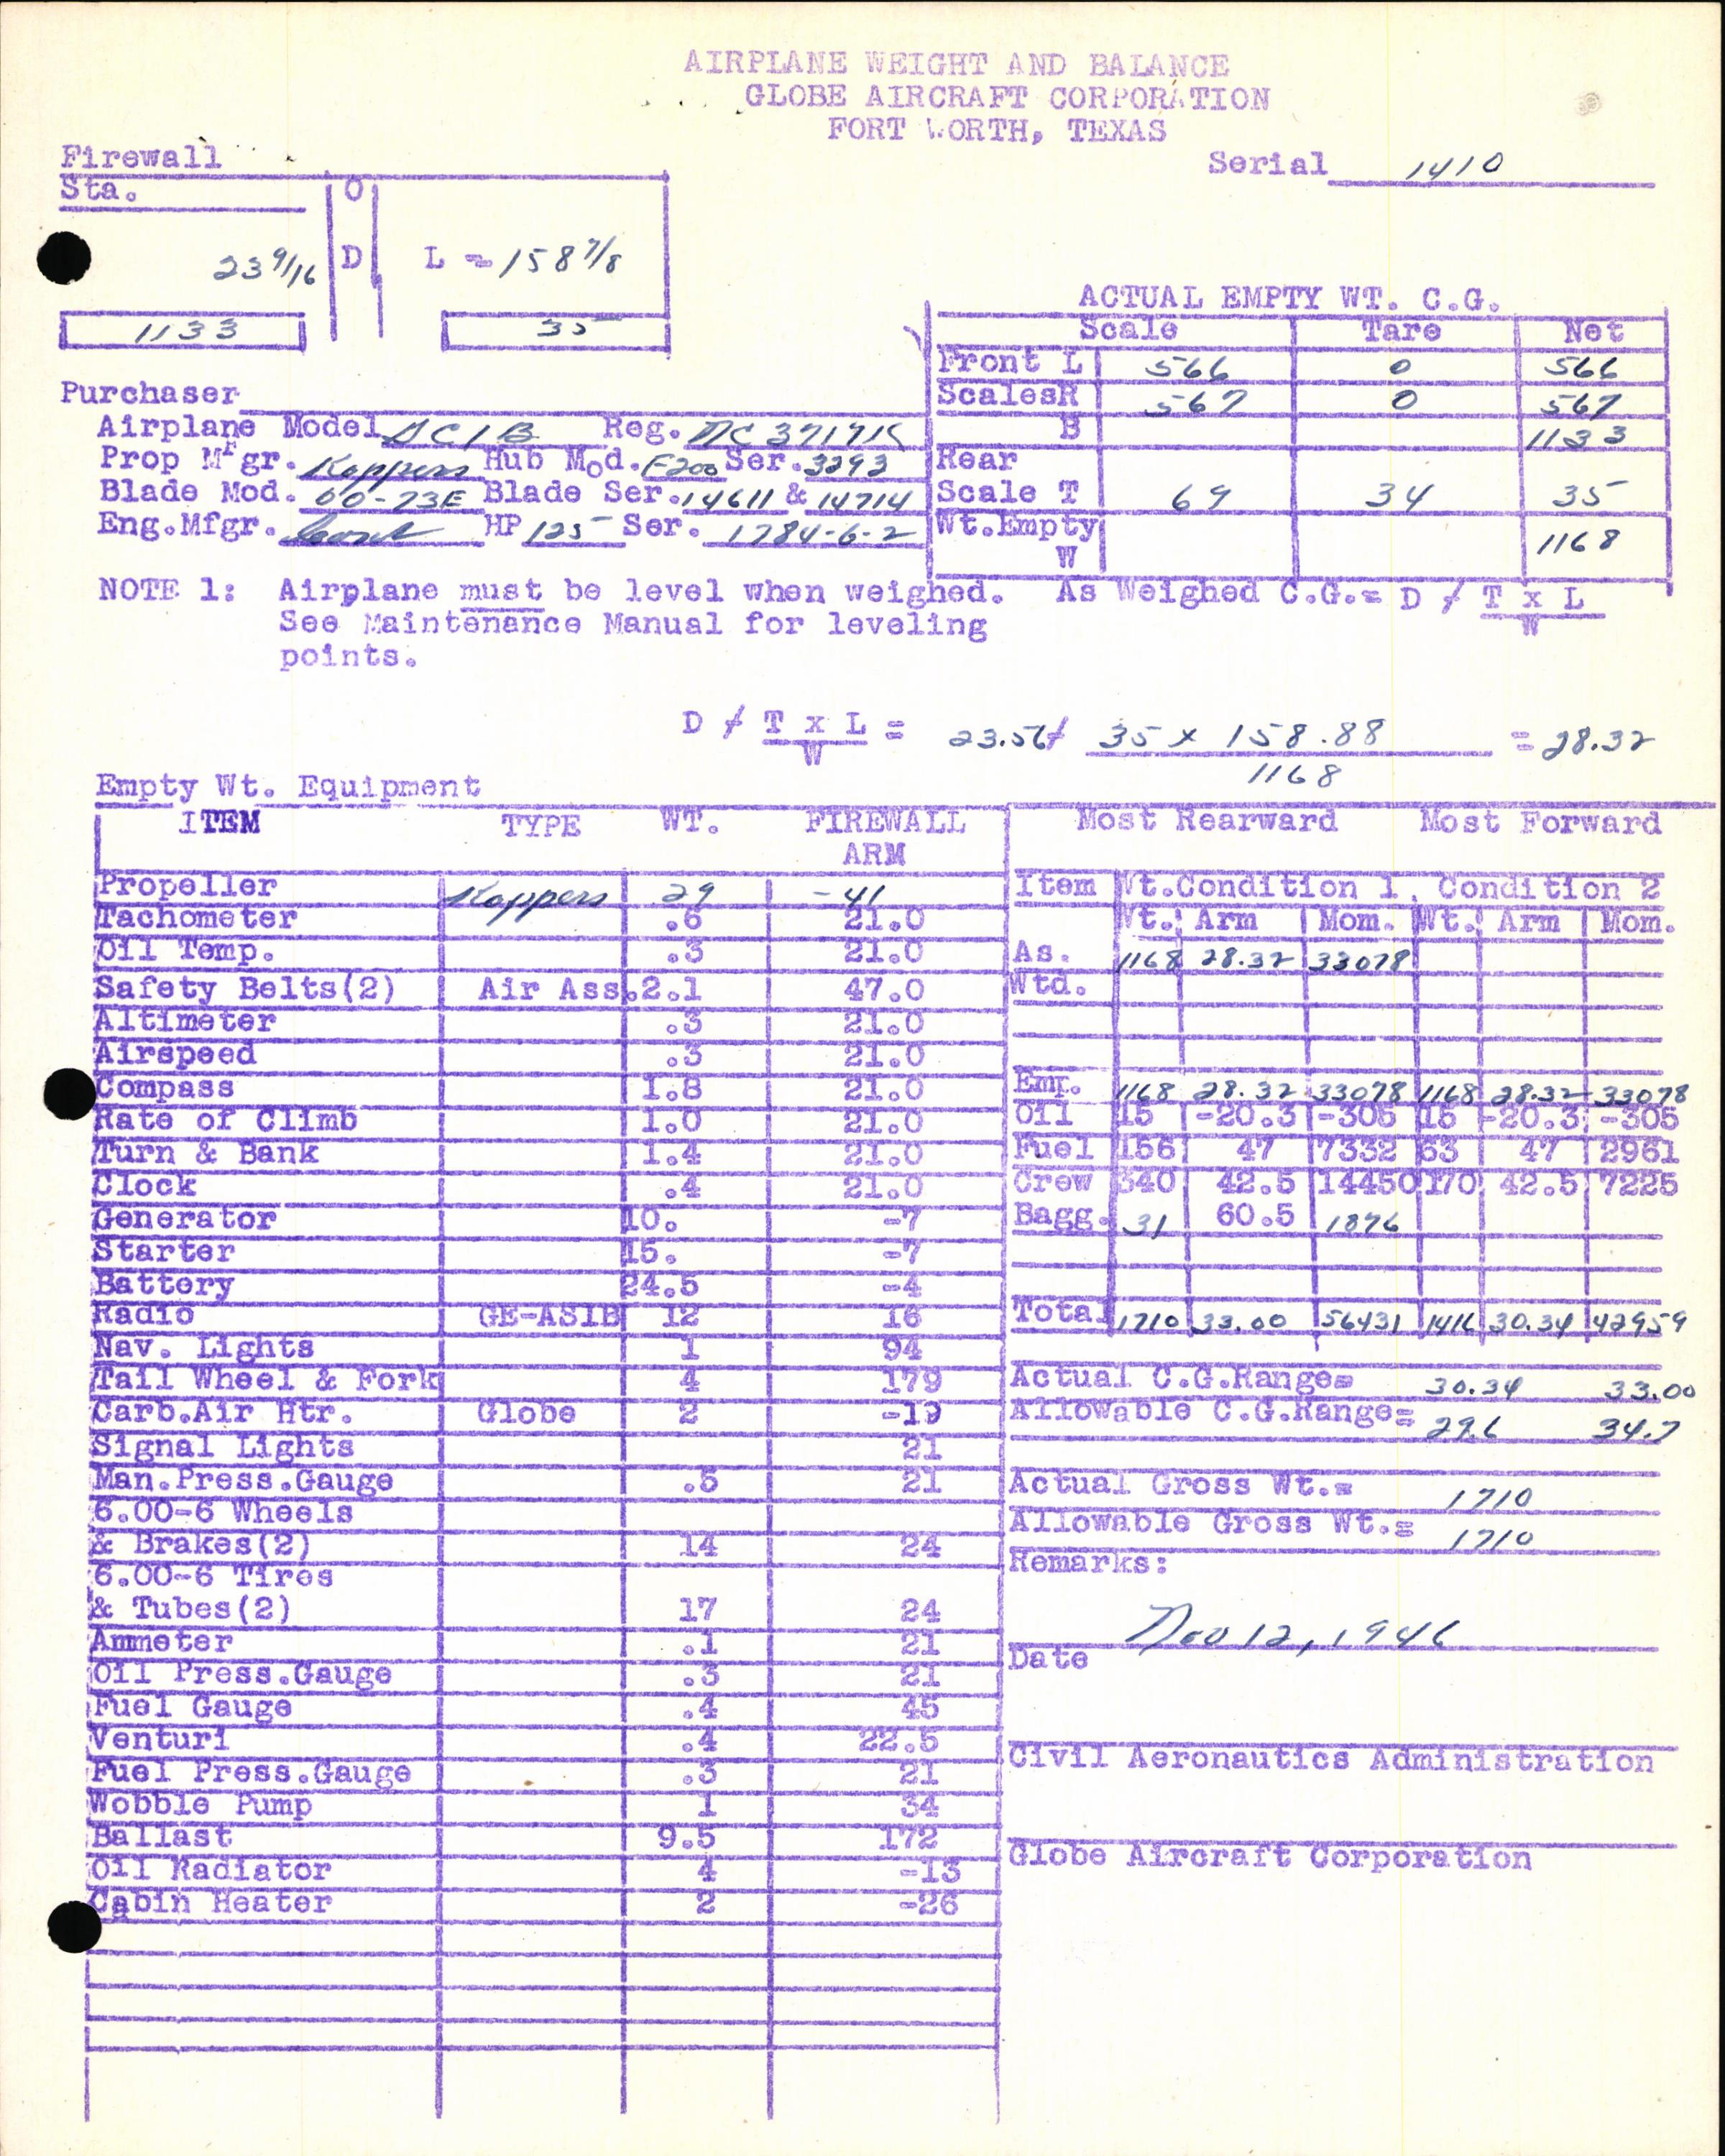 AIRPLANE WEIGHT AND BALANCE
GLOBE AIRCRAFT CORPORATION
FORT WORTH, TEXAS
Serial 1410
Firewall
Sta. O
23 9/16 D L = 158 7/8
1133 35
ACTUAL EMPTY WT. C.G.
Scale Tare Net
Front L 566 0 566
ScalesR 567 0 567
B 1133
Rear
Scale T 69 34 35
Wt.Empty
W 1168
Purchaser
Airplane Model GC1B Reg. NC3717K
Prop Mfgr. Koppers Hub Mod. F200 Ser. 3293
Blade Mod. 00-73E Blade Ser. 14611 & 14714
Eng.Mfgr. HP 125 Ser. 1784-6-2
NOTE 1: Airplane must be level when weighed. As Weighed C.G.= D / T x L
W
See Maintenance Manual for leveling
points.
D / T x L = 23.56 / 35 x 158.88 = 28.32
W 1168
Empty Wt. Equipment
ITEM TYPE WT. FIREWALL
ARM
Propeller Koppers 29 -41
Tachometer .6 21.0
Oil Temp. .3 21.0
Safety Belts(2) Air Ass. 2.1 47.0
Altimeter .3 21.0
Airspeed .3 21.0
Compass 1.8 21.0
Rate of Climb 1.0 21.0
Turn & Bank 1.4 21.0
Clock .4 21.0
Generator 10. -7
Starter 15. -7
Battery 24.5 -4
Radio GE-AS1B 12 16
Nav. Lights 1 94
Tail Wheel & Fork 4 179
Carb.Air Htr. Globe 2 -19
Signal Lights 21
Man.Press.Gauge .5 21
6.00-6 Wheels
& Brakes(2) 14 24
6.00-6 Tires
& Tubes(2) 17 24
Ammeter .1 21
Oil Press.Gauge .3 21
Fuel Gauge .4 45
Venturi .4 22.5
Fuel Press.Gauge .3 21
Wobble Pump 1 34
Ballast 9.5 172
Oil Radiator 4 -13
Cabin Heater 2 -26
Most Rearward Most Forward
Item Wt.Condition 1, Condition 2
Wt. Arm Mom. Wt. Arm Mom.
As. 1168 28.32 33078
Wtd.
Emp. 1168 28.32 33078 1168 28.32 33078
Oil 15 -20.3 -305 15 -20.3 -305
Fuel 156 47 7332 63 47 2961
Crew 340 42.5 14450 170 42.5 7225
Bagg. 31 60.5 1876
Total 1710 33.00 56431 1416 30.34 42959
Actual C.G.Range= 30.34 33.00
Allowable C.G.Range= 29.6 34.7
Actual Gross Wt.= 1710
Allowable Gross Wt.= 1710
Remarks:
Nov 12, 1946
Date
Civil Aeronautics Administration
Globe Aircraft Corporation